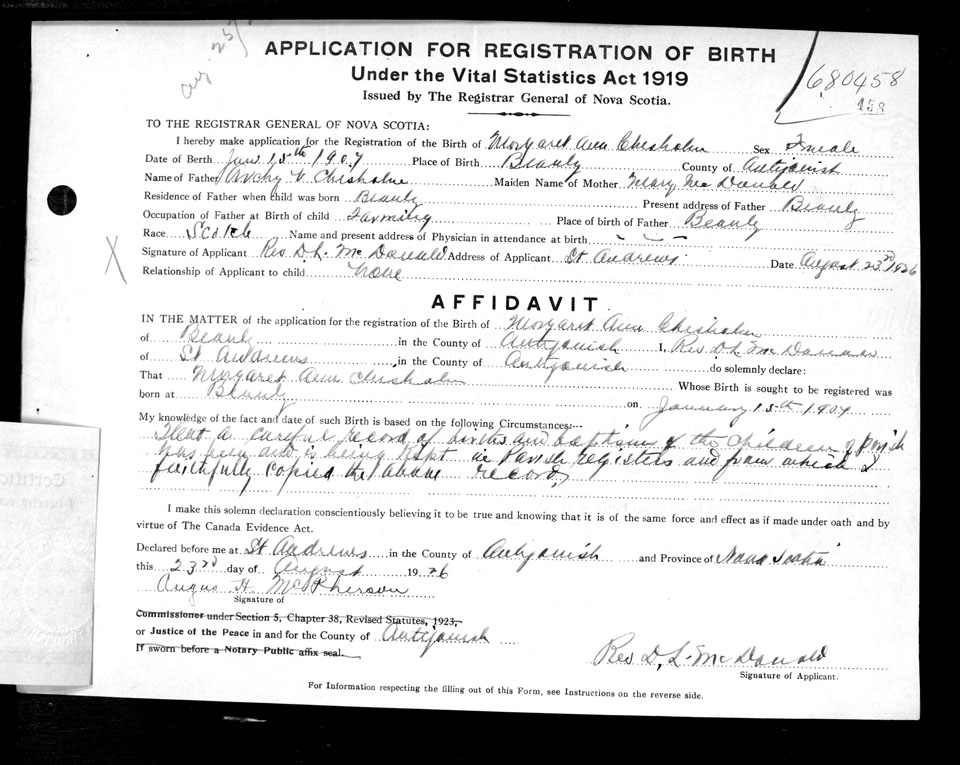 Aug 25/
APPLICATION FOR REGISTRATION OF BIRTH
Under the Vital Statistics Act 1919
Issued by The Registrar General of Nova Scotia.
680458
458
TO THE REGISTRAR GENERAL OF NOVA SCOTIA:
I hereby make application for the Registration of the Birth of Margaret Ann Chisholm Sex Female
Date of Berth Jan 15th 1907 Place of Birth Beauly County of Antigonish
Name of Father Archy V. Chisholm Maiden Name of Mother Mary McDonald
Residence of Father when child was born Beauly Present address of Father Beauly
Occupation of Father at Birth of child Farming Place of birth of Father Beauly
Race Scotch Name and present address of Physician in attendance at birth
Signature of Applicant Rev D. L. McDonald Address of Applicant St Andrews Date August 23rd 1926
Relationship of Applicant to child None
X
AFFIDAVIT
IN THE MATTER of the application for the registration of the Birth of Margaret Ann Chisholm
of Beauly in the County of Antigonish I, Rev D. L. McDonald
of St Andrews, in the County of Antigonish do solemnly declare:
That Margaret Ann Chisholm Whose Birth is sought to be registered was
born at Beauly on January 15th
My knowledge of the fact and date of such Birth is based on the following Circumstances:
That a careful record of births and baptisms of the children of Parish
has been and is being kept in Parish registers and from which I
faithfully copied the above record,
I make this solemn declaration conscientiously believing it to be true and knowing that it is of the same force and effect as if made under oath and by
virtue of The Canada Evidence Act.
Declared before me at St Andrews in the County of Antigonish and Province of Nova Scotia
this 23rd day of August 1926
Angus H. McPherson
Signature of
Commissioner under Section 5, Chapter 38, Revised Statutes, 1923,
or Justice of the Peace in and for the County of Antigonish
If sworn before a Notary Public affix seal.
Rev D. L. McDonald
Signature of Applicant.
For Information respecting the filling out of this Form, see Instructions on the reverse side.